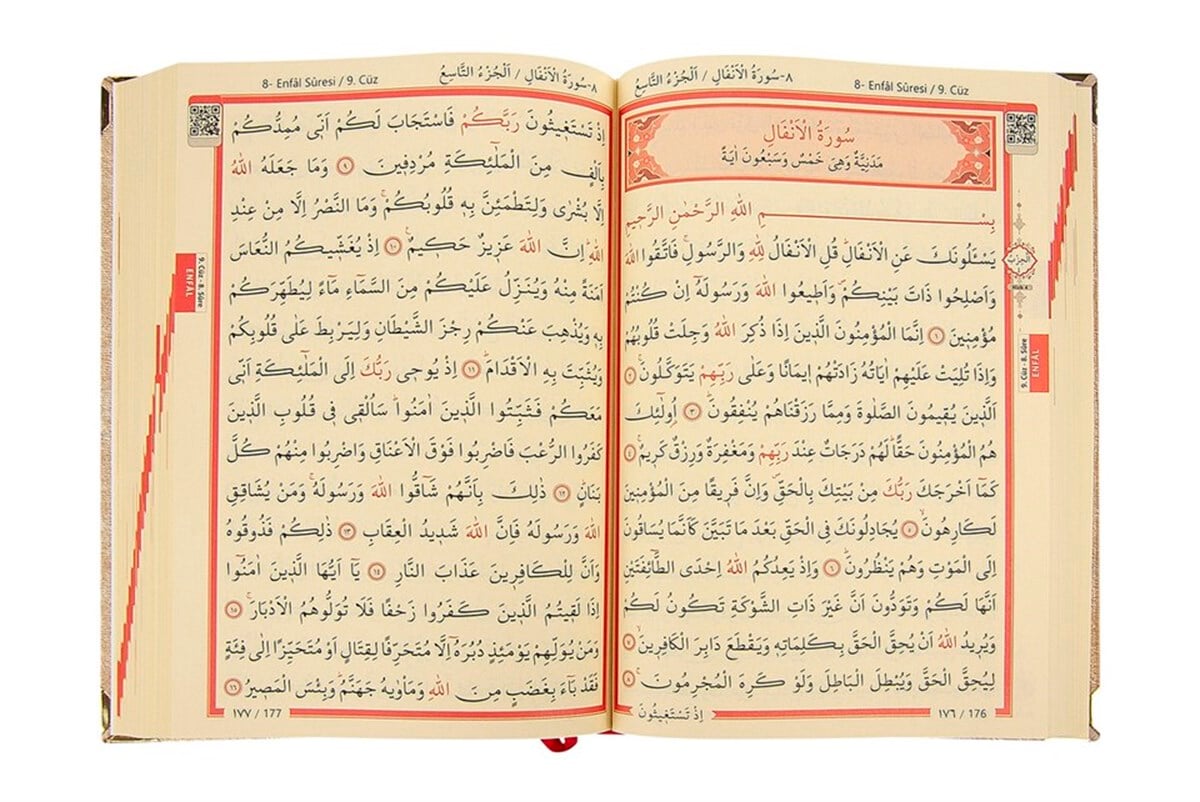 ٨-سُورَةُ الْاَنْفَالِ / اَلْجُزْءُ التَّاسِعُ
8- Enfâl Sûresi / 9. Cüz
سُورَةُ الْاَنْفَالِ
مَدَنِيَّةٌ وَهِيَ خَمْسٌ وَسَبْعُونَ اٰيَةً
بِسْمِ اللّٰهِ الرَّحْمٰنِ الرَّحِيمِ
يَسْـَٔلُونَكَ عَنِ الْاَنْفَالِۜ قُلِ الْاَنْفَالُ لِلّٰهِ وَالرَّسُولِۚ فَاتَّقُوا اللّٰهَ
وَاَصْلِحُوا ذَاتَ بَيْنِكُمْۖ وَاَطِيعُوا اللّٰهَ وَرَسُولَهُٓ اِنْ كُنْتُمْ
مُؤْمِنِينَ ﴿١﴾ اِنَّمَا الْمُؤْمِنُونَ الَّذِينَ اِذَا ذُكِرَ اللّٰهُ وَجِلَتْ قُلُوبُهُمْ
وَاِذَا تُلِيَتْ عَلَيْهِمْ اٰيَاتُهُ زَادَتْهُمْ اِيمَانًا وَعَلٰى رَبِّهِمْ يَتَوَكَّلُونَۚ ﴿٢﴾
اَلَّذِينَ يُقِيمُونَ الصَّلٰوةَ وَمِمَّا رَزَقْنَاهُمْ يُنْفِقُونَۜ ﴿٣﴾ اُو۬لٰٓئِكَ
هُمُ الْمُؤْمِنُونَ حَقًّاۜ لَهُمْ دَرَجَاتٌ عِنْدَ رَبِّهِمْ وَمَغْفِرَةٌ وَرِزْقٌ كَرِيمٌۚ ﴿٤﴾
كَمَٓا اَخْرَجَكَ رَبُّكَ مِنْ بَيْتِكَ بِالْحَقِّۖ وَاِنَّ فَرِيقًا مِنَ الْمُؤْمِنِينَ
لَكَارِهُونَۙ ﴿٥﴾ يُجَادِلُونَكَ فِي الْحَقِّ بَعْدَ مَا تَبَيَّنَ كَاَنَّمَا يُسَاقُونَ
اِلَى الْمَوْتِ وَهُمْ يَنْظُرُونَۜ ﴿٦﴾ وَاِذْ يَعِدُكُمُ اللّٰهُ اِحْدَى الطَّٓائِفَتَيْنِ
اَنَّهَا لَكُمْ وَتَوَدُّونَ اَنَّ غَيْرَ ذَاتِ الشَّوْكَةِ تَكُونُ لَكُمْ
وَيُرِيدُ اللّٰهُ اَنْ يُحِقَّ الْحَقَّ بِكَلِمَاتِهِ وَيَقْطَعَ دَابِرَ الْكَافِرِينَۙ ﴿٧﴾
لِيُحِقَّ الْحَقَّ وَيُبْطِلَ الْبَاطِلَ وَلَوْ كَرِهَ الْمُجْرِمُونَۚ ﴿٨﴾
اِذْ تَسْتَغِيثُونَ
١٧٦ / 176
9. Cüz - 8. Sûre
ENFÂL
8- Enfâl Sûresi / 9. Cüz
٨-سُورَةُ الْاَنْفَالِ / اَلْجُزْءُ التَّاسِعُ
اِذْ تَسْتَغِيثُونَ رَبَّكُمْ فَاسْتَجَابَ لَكُمْ اَنِّي مُمِدُّكُمْ
بِاَلْفٍ مِنَ الْمَلٰٓئِكَةِ مُرْدِفِينَ ﴿٩﴾ وَمَا جَعَلَهُ اللّٰهُ
اِلَّا بُشْرٰى وَلِتَطْمَئِنَّ بِهِ قُلُوبُكُمْۚ وَمَا النَّصْرُ اِلَّا مِنْ عِنْدِ
اللّٰهِۜ اِنَّ اللّٰهَ عَزِيزٌ حَكِيمٌ۟ ﴿١٠﴾ اِذْ يُغَشِّيكُمُ النُّعَاسَ
اَمَنَةً مِنْهُ وَيُنَزِّلُ عَلَيْكُمْ مِنَ السَّمَٓاءِ مَٓاءً لِيُطَهِّرَكُمْ
بِهِ وَيُذْهِبَ عَنْكُمْ رِجْزَ الشَّيْطَانِ وَلِيَرْبِطَ عَلٰى قُلُوبِكُمْ
وَيُثَبِّتَ بِهِ الْاَقْدَامَۜ ﴿١١﴾ اِذْ يُوحِي رَبُّكَ اِلَى الْمَلٰٓئِكَةِ اَنِّي
مَعَكُمْ فَثَبِّتُوا الَّذِينَ اٰمَنُواۜ سَاُلْقِي فِي قُلُوبِ الَّذِينَ
كَفَرُوا الرُّعْبَ فَاضْرِبُوا فَوْقَ الْاَعْنَاقِ وَاضْرِبُوا مِنْهُمْ كُلَّ
بَنَانٍۜ ﴿١٢﴾ ذٰلِكَ بِاَنَّهُمْ شَٓاقُّوا اللّٰهَ وَرَسُولَهُۚ وَمَنْ يُشَاقِقِ
اللّٰهَ وَرَسُولَهُ فَاِنَّ اللّٰهَ شَدِيدُ الْعِقَابِ ﴿١٣﴾ ذٰلِكُمْ فَذُوقُوهُ
وَاَنَّ لِلْكَافِرِينَ عَذَابَ النَّارِ ﴿١٤﴾ يَٓا اَيُّهَا الَّذِينَ اٰمَنُٓوا
اِذَا لَقِيتُمُ الَّذِينَ كَفَرُوا زَحْفًا فَلَا تُوَلُّوهُمُ الْاَدْبَارَۚ ﴿١٥﴾
وَمَنْ يُوَلِّهِمْ يَوْمَئِذٍ دُبُرَهُٓ اِلَّا مُتَحَرِّفًا لِقِتَالٍ اَوْ مُتَحَيِّزًا اِلٰى فِئَةٍ
فَقَدْ بَٓاءَ بِغَضَبٍ مِنَ اللّٰهِ وَمَأْوٰيهُ جَهَنَّمُۜ وَبِئْسَ الْمَصِيرُ ﴿١٦﴾
١٧٧ / 177
9. Cüz - 8. Sûre
ENFÂL